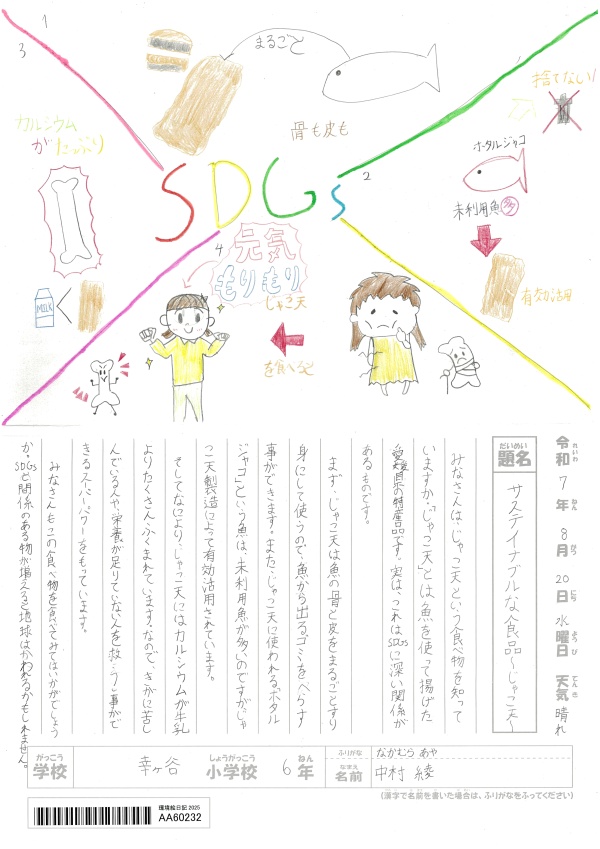 1
3
まるごと
骨も皮も
捨てない!
カルシウム
がたっぷり
2
ホタルジャコ
未利用魚
多々
有効活用
SDGs
MILK
4
元気
もりもり
じゃこ天
を食べると
令和7年8月20日水曜日 天気 晴れ
れいわ ねん がつ にち ようび てんき
だいめい
題名
サステイナブルな食品〜じゃこ天〜
みなさんは、じゃこ天という食べ物を知って
いますか。じゃこ天とは魚を使って揚げた
愛媛県の特産品です。実は、これはSDGsに深い関係が
あるものです。
まず、じゃこ天は魚の骨と皮をまるごとすり
身にして使うので、魚から出るゴミをへらす
事ができます。また、じゃこ天に使われる「ホタル
ジャコ」という魚は、未利用魚が多いのですがじゃ
こ天製造によって有効活用されています。
そしてなにより、じゃこ天にはカルシウムが牛乳
よりたくさんふくまれています。なので、きがに苦し
んでいる人や、栄養が足りていない人を救う事がで
きるスーパーパワーをもっています。
みなさんもこの食べ物を食べてみてはいかがでしょう
か。SDGsと関係のある物が増えると地球はかわれるかもしれません。
がっこう
学校
幸ヶ谷
しょうがっこう
小学校
6
ねん
年
ふりがな
なかむら あや
なまえ
名前
中村 綾
(漢字で名前を書いた場合は、ふりがなをふってください)
環境絵日記 2025
AA60232